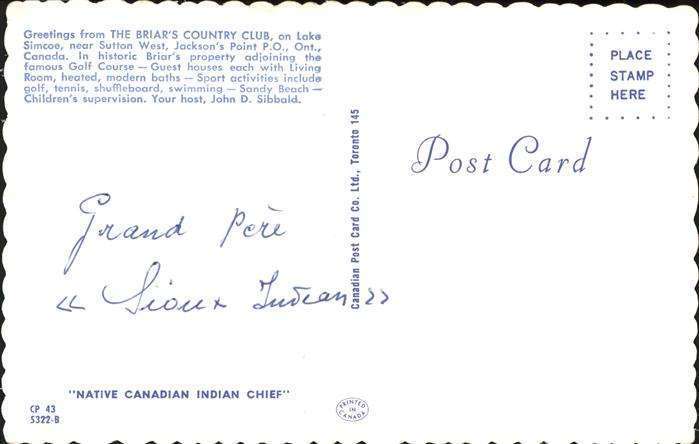 Greetings from THE BRIAR'S COUNTRY CLUB, on Lake
Simcoe, near Sutton West, Jackson's Point P.O., Ont.,
Canada. In historic Briar's property adjoining the
famous Golf Course — Guest houses each with Living
Room, heated, modern baths — Sport activities include
golf, tennis, shuffleboard, swimming — Sandy Beach —
Children's supervision. Your host, John D. Sibbald.
PLACE
STAMP
HERE
Post Card
Canadian Post Card Co. Ltd., Toronto 145
Grand Père
« Sioux Indean »
"NATIVE CANADIAN INDIAN CHIEF"
CP 43
5322-B
PRINTED
IN
CANADA